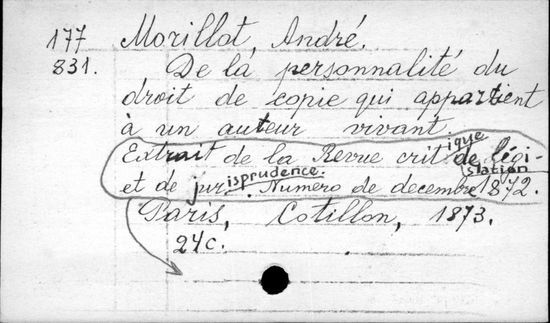 177 Morillot, André.
831. De la personnalité du
droit de copie qui appartient
à un auteur vivant.
Extrait de la Revue critique de législation
et de jurisprudence. Numéro de decembre 1872.
Paris, Cotillon, 1873.
24c.